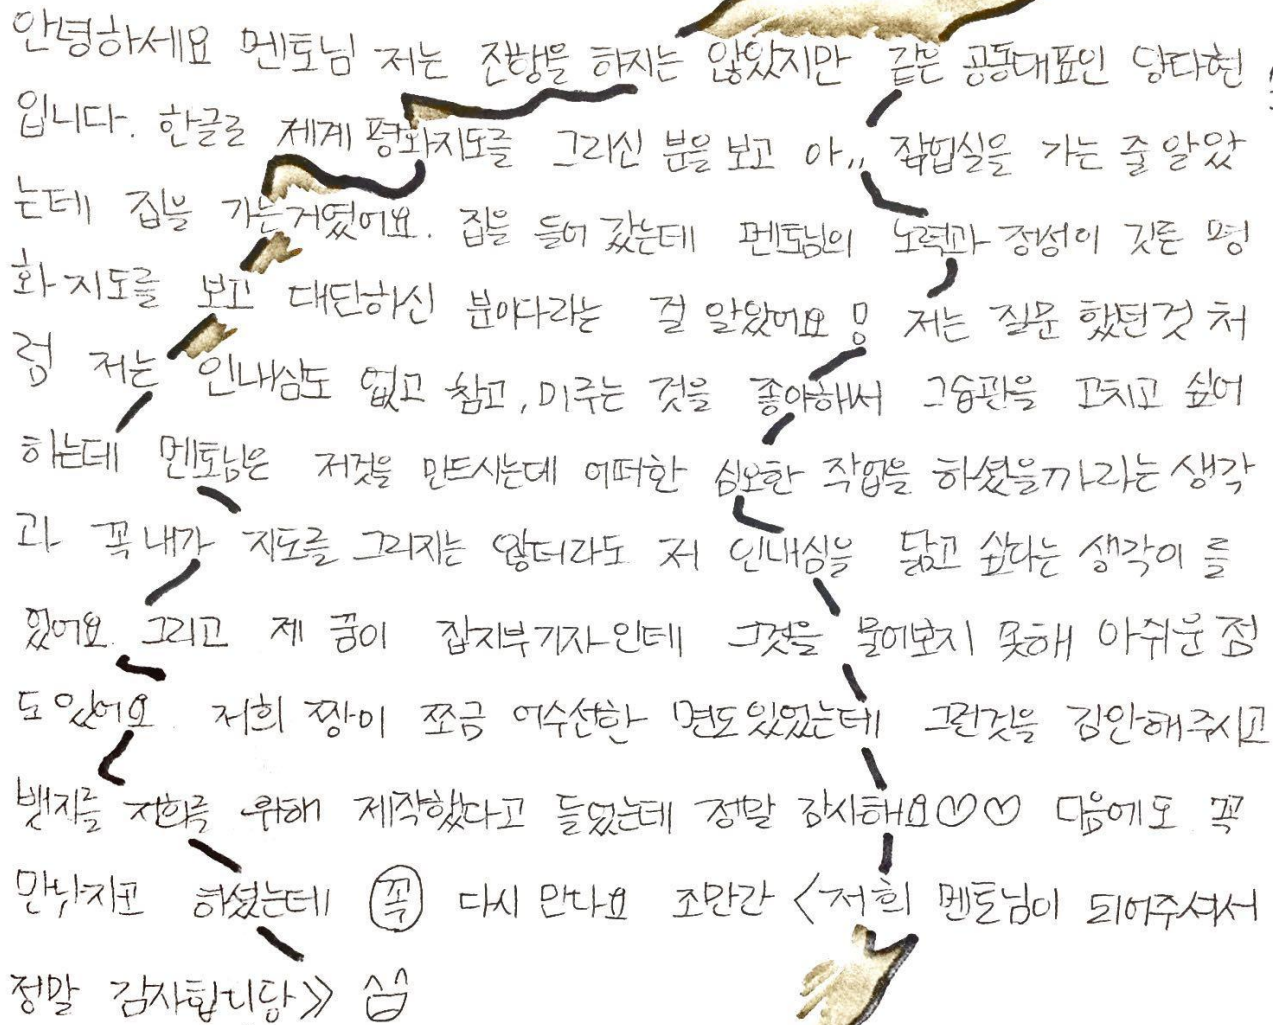 안녕하세요 멘토님 저는 진행을 하지는 않았지만 같은 공동대표인 당다현
입니다. 한글로 제계 평화지도를 그리신 분을 보고 아,, 작업실을 가는 줄 알았
는데 집을 가는거였어요. 집을 들어 갔는데 멘토님의 노력과 정성이 깃른 평
화지도를 보고 대단하신 분이다라는 걸 알았어요!! 저는 질문 했던것 처
럼 저는 인내심도 없고 참고, 미루는 것을 좋아해서 그습관을 고치고 싶어
하는데 멘토님은 저것을 만드시는데 어떠한 심오한 작업을 하셨을까라는 생각
과 꼭 내가 지도를 그리지는 않더라도 저 인내심을 닮고 싶다는 생각이 를
있어요. 그리고 제 꿈이 잡지부기자인데 그것을 물어보지 못해 아쉬운 점
도 있어요. 저희 짱이 쪼금 어수선한 면도있었는데 그런것을 김안해주시고
뱃지를 저희를 위해 제작했다고 들었는데 정말 감사해요♡♡ 다음에도 꼭
만나자고 하셨는데 꼭 다시 만나요 조만간 <저희 멘토님이 되어주셔서
정말 감사합니당>>